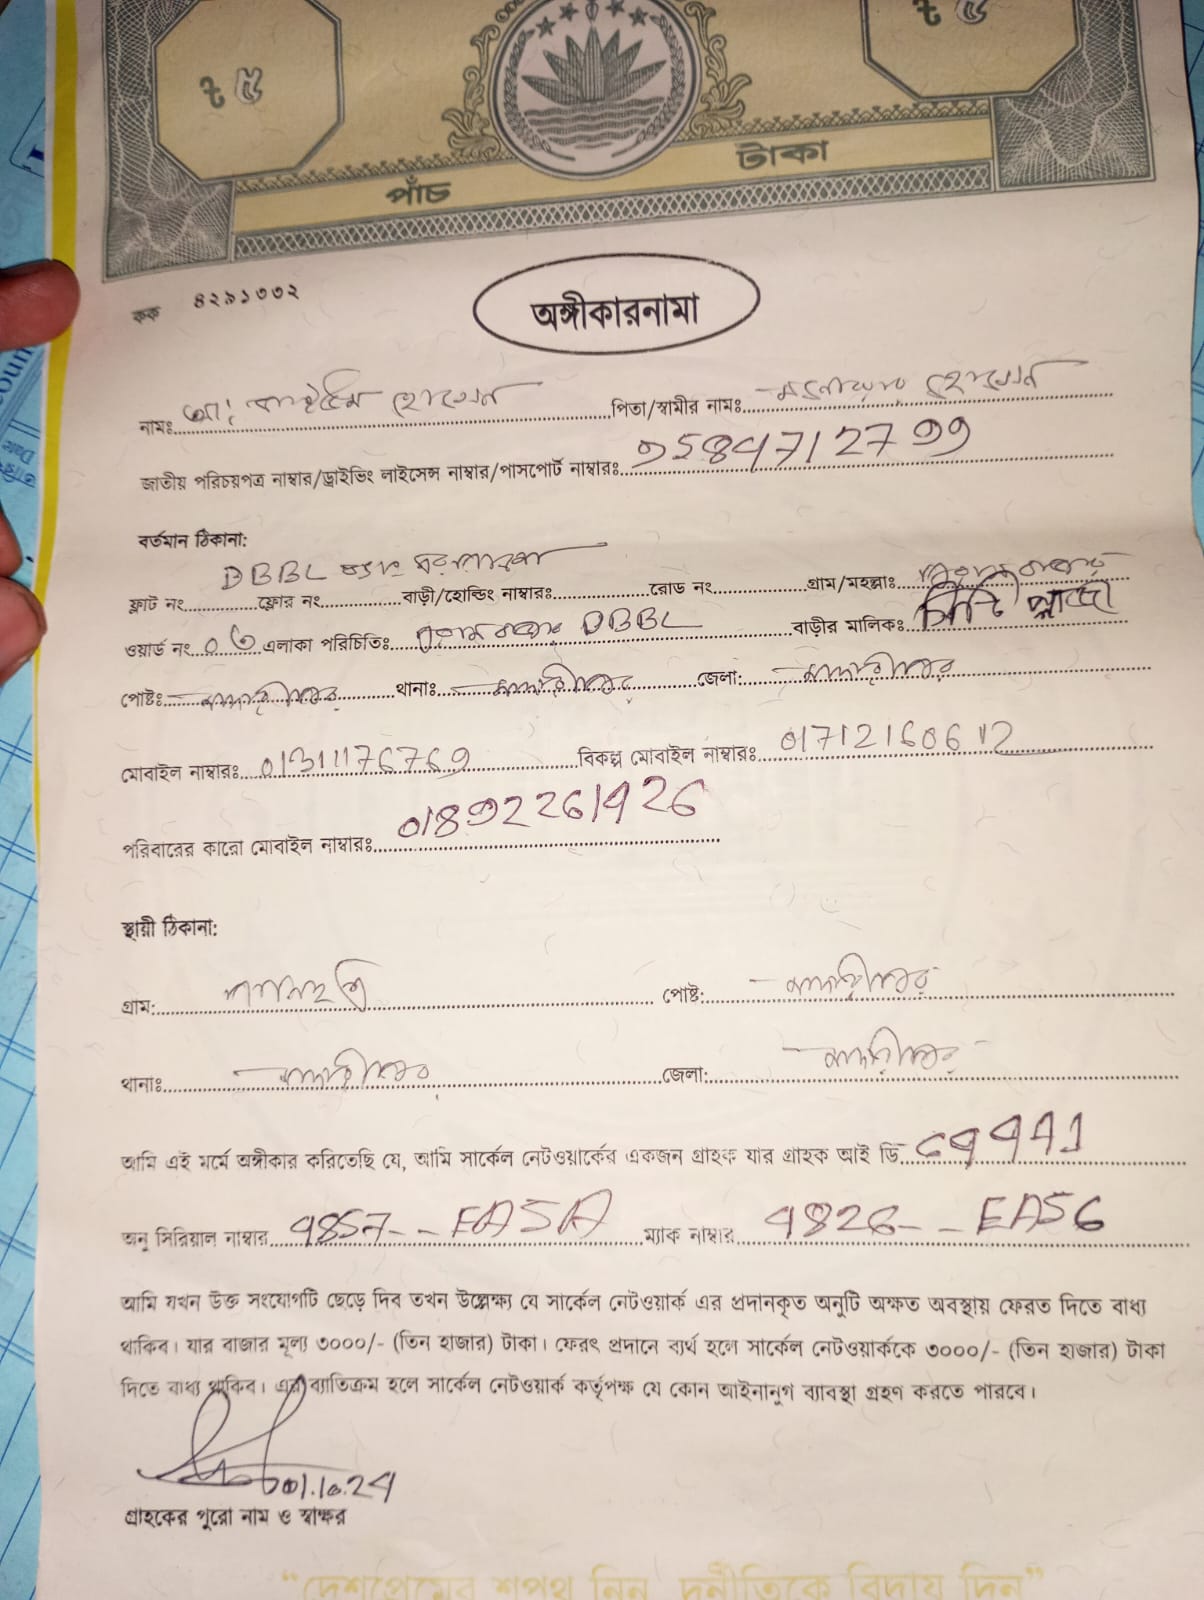 ৳ ৫
৳ ৫
পাঁচ টাকা
কক ৪২৯১৩৩২
অঙ্গীকারনামা
নামঃ হোসেন পিতা/স্বামীর নামঃ হোসেন
জাতীয় পরিচয়পত্র নাম্বার/ড্রাইভিং লাইসেন্স নাম্বার/পাসপোর্ট নাম্বারঃ
বর্তমান ঠিকানা:
DBBL
ফ্লাট নং ফ্লোর নং বাড়ী/হোল্ডিং নাম্বারঃ রোড নং গ্রাম/মহল্লাঃ
ওয়ার্ড নং ০৩ এলাকা পরিচিতিঃ DBBL বাড়ীর মালিকঃ
পোষ্টঃ মাদারীপুর থানাঃ মাদারীপুর জেলা: মাদারীপুর
মোবাইল নাম্বারঃ 01311176769 বিকল্প মোবাইল নাম্বারঃ 01712160612
পরিবারের কারো মোবাইল নাম্বারঃ
স্থায়ী ঠিকানা:
গ্রাম: পোষ্ট: মাদারীপুর
থানাঃ মাদারীপুর জেলা: মাদারীপুর
আমি এই মর্মে অঙ্গীকার করিতেছি যে, আমি সার্কেল নেটওয়ার্কের একজন গ্রাহক যার গ্রাহক আই ডি
অনু সিরিয়াল নাম্বার ম্যাক নাম্বার
আমি যখন উক্ত সংযোগটি ছেড়ে দিব তখন উল্লেক্ষ্য যে সার্কেল নেটওয়ার্ক এর প্রদানকৃত অনুটি অক্ষত অবস্থায় ফেরত দিতে বাধ্য
থাকিব। যার বাজার মূল্য ৩০০০/- (তিন হাজার) টাকা। ফেরৎ প্রদানে ব্যর্থ হলে সার্কেল নেটওয়ার্ককে ৩০০০/- (তিন হাজার) টাকা
দিতে বাধ্য থাকিব। এর ব্যাতিক্রম হলে সার্কেল নেটওয়ার্ক কর্তৃপক্ষ যে কোন আইনানুগ ব্যাবস্থা গ্রহণ করতে পারবে।
01.10.24
গ্রাহকের পুরো নাম ও স্বাক্ষর
“দেশপ্রেমের শপথ নিন, দুর্নীতিকে বিদায় দিন”